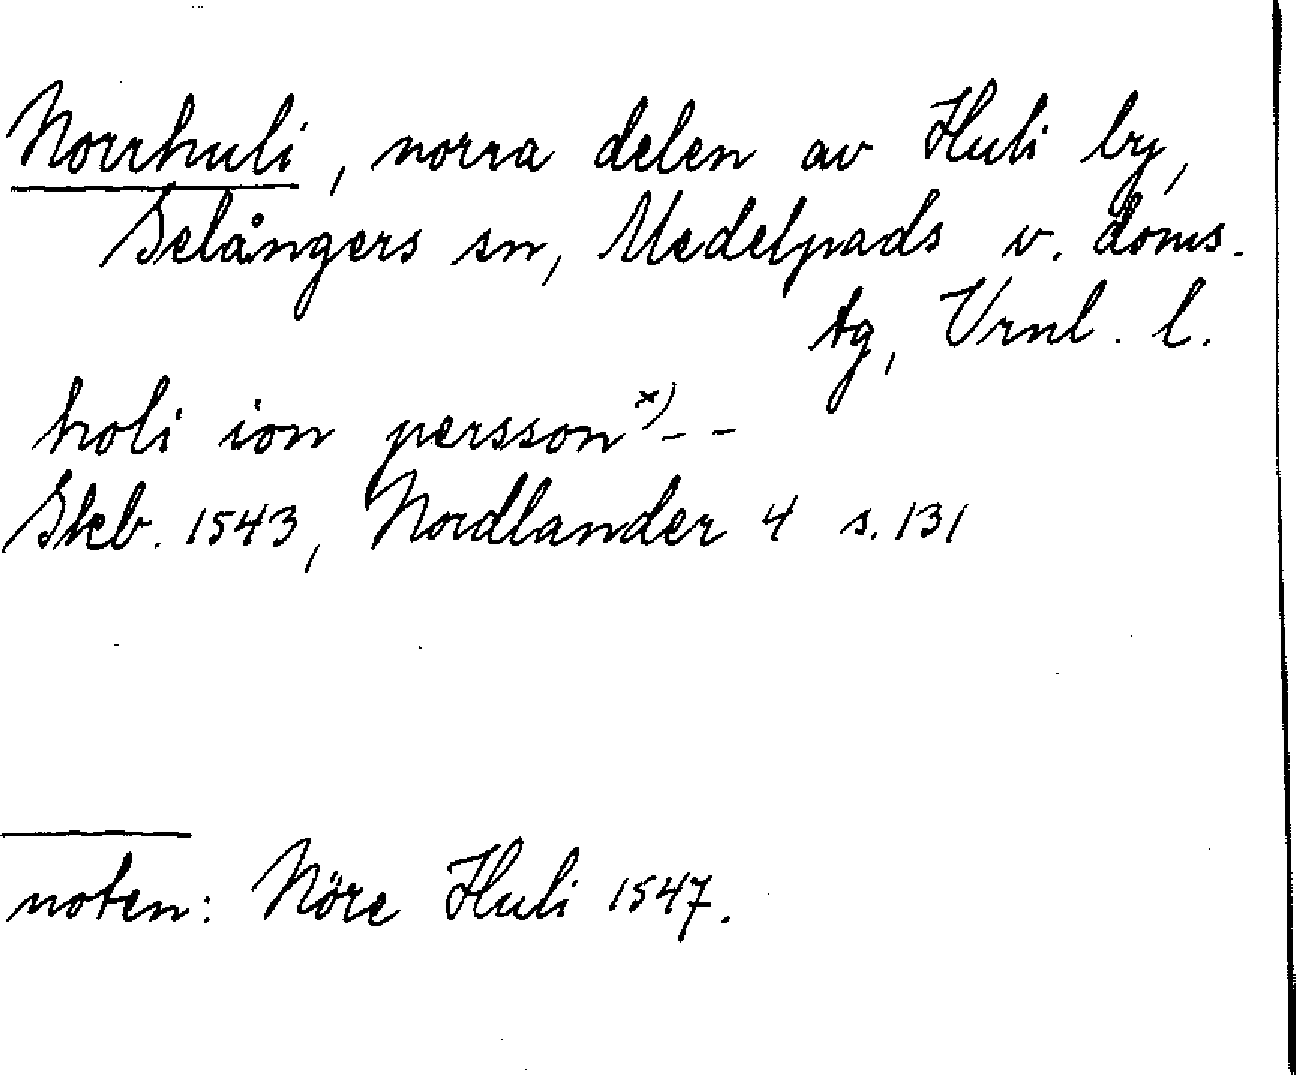 Norrhuli, norra delen av Huli by,
Selångers sn, Medelpads v. doms.
tg, Vrnl. l.
holi ion persson x) - -
Skb. 1543, Nordlander 4 s. 131
noten: Nöre Huli 1547.